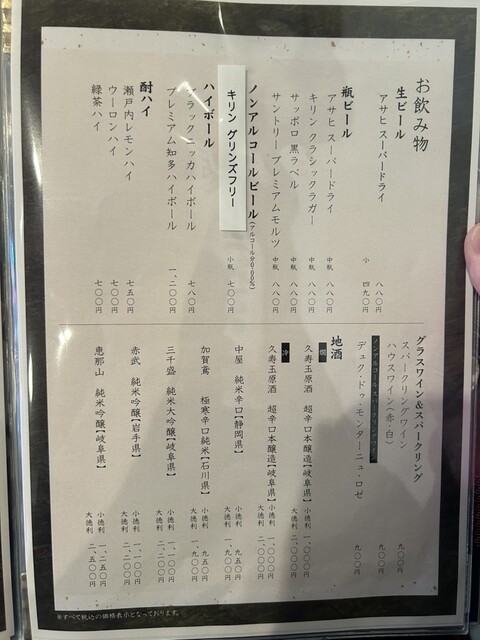 お飲み物
生ビール
アサヒ スーパードライ 八八〇円
小 四九〇円
瓶ビール
アサヒ スーパードライ 中瓶 八八〇円
キリン クラシックラガー 中瓶 八八〇円
サッポロ 黒ラベル 中瓶 八八〇円
サントリー プレミアムモルツ 中瓶 八八〇円
ノンアルコールビール(アルコール分0.00%)
キリン グリンズフリー 小瓶 七〇〇円
ハイボール
ブラックニッカハイボール 七八〇円
プレミアム知多ハイボール 一、二〇〇円
酎ハイ
瀬戸内レモンハイ 七五〇円
ウーロンハイ 七〇〇円
緑茶ハイ 七〇〇円
グラスワイン&スパークリング
スパークリングワイン 九〇〇円
ハウスワイン(赤・白) 九〇〇円
ノンアルコールスパークリングワイン
デュク・ドゥ・モンターニュ・ロゼ 九〇〇円
地酒
燗
久寿玉原酒 超辛口本醸造【岐阜県】 小徳利 一、〇〇〇円
大徳利 二、〇〇〇円
冷
久寿玉原酒 超辛口本醸造【岐阜県】 小徳利 一、〇〇〇円
大徳利 二、〇〇〇円
中屋 純米辛口【静岡県】 小徳利 九五〇円
大徳利 一、九〇〇円
加賀鳶 極寒辛口純米【石川県】 小徳利 九五〇円
大徳利 一、九〇〇円
三千盛 純米大吟醸【岐阜県】 小徳利 一、一〇〇円
大徳利 二、二〇〇円
赤武 純米吟醸【岩手県】 小徳利 一、一〇〇円
大徳利 二、二〇〇円
恵那山 純米吟醸【岐阜県】 小徳利 一、二五〇円
大徳利 二、五〇〇円
※すべて税込の価格表示となっております。